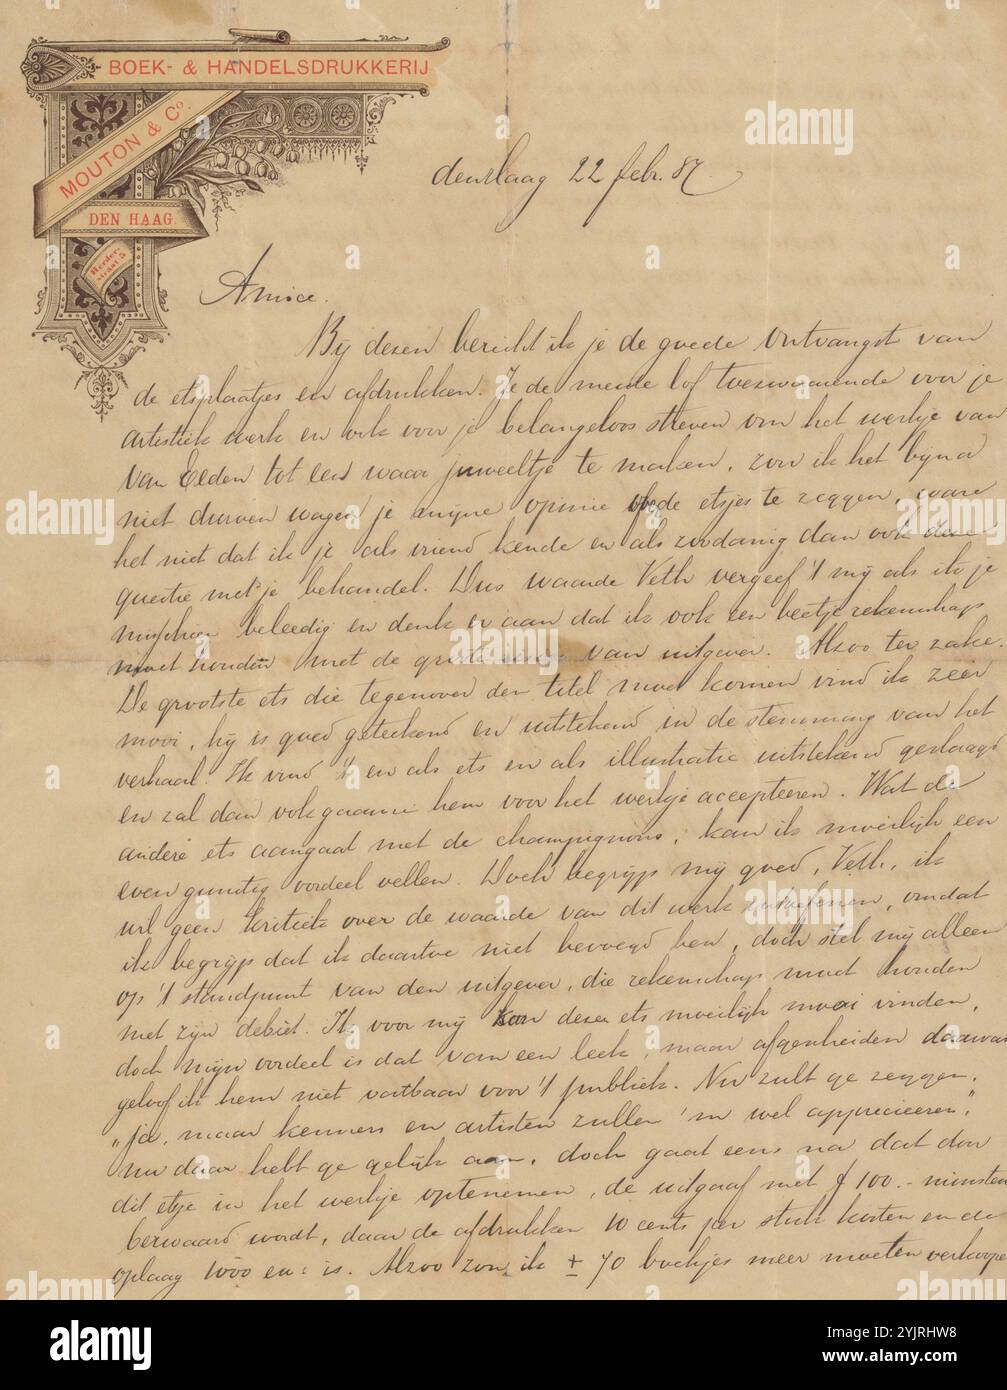 BOEK- & HANDELSDRUKKERIJ
MOUTON & Co.
DEN HAAG.
Herder-
straat 5
den Haag 22 febr. 87.
Amice.
Bij dezen bericht ik je de goede ontvangst van
de etsplaatjes en afdrukken. Je de meeste lof toezwaaiende voor je
artistiek werk en ook voor je belangeloos streven om het werkje van
Van Eeden tot een waar juweeltje te maken, zou ik het bijna
niet durven wagen je mijne opinie der etsjes te zeggen, ware
het niet dat ik je als vriend kende en als zoodanig dan ook deze
questie met je behandel. Dus waarde Veth vergeef 't mij als ik je
misschien beleedig en denk er aan dat ik ook een beetje rekenschap
moet houden met de van uitgever. Alzoo ter zake.
De grootste ets die tegenover den titel moet komen vind ik zeer
mooi, hij is goed geteekend en uitstekend in de stemming van het
verhaal. Ik vind 't en als ets en als illustratie uitstekend geslaagd
en zal dan ook gaarne hem voor het werkje accepteeren. Wat de
andere ets aangaat met de champignons, kan ik moeilijk een
even gunstig oordeel vellen. Doch begrijp mij goed, Veth, ik
wil geen kritiek over de waarde van dit werk uitoefenen, omdat
ik begrijp dat ik daartoe niet bevoegd ben, doch stel mij alleen
op 't standpunt van den uitgever, die rekenschap moet houden
met zijn debiet. Ik voor mij kan deze ets moeilijk mooi vinden,
doch mijn oordeel is dat van een leek, maar afgescheiden daarvan
geloof ik hem niet vatbaar voor 't publiek. Nu zult ge zeggen,
"ja, maar kenners en artisten zullen 'm wel apprecieeren",
nu daar hebt ge gelijk aan, doch gaat eens na dat door
dit etsje in het werkje optenemen, de uitgaaf met ƒ 100.- minstens
bezwaard wordt, daar de afdrukken 10 cents per stuk kosten en de
oplaag 1000 ex: is. Alzoo zou ik ± 70 boekjes meer moeten verkoopen
alamy
Image ID: 2YJRHW8
www.alamy.com